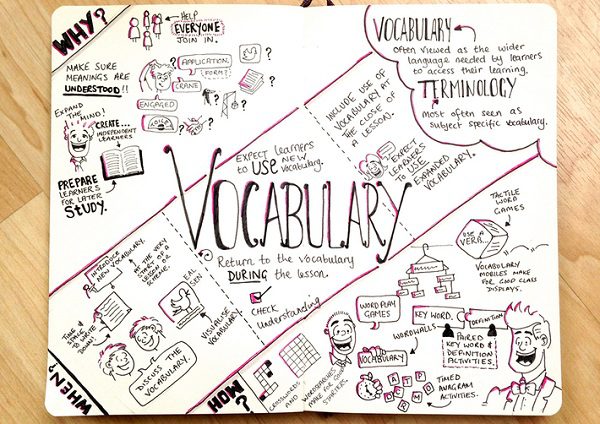 WHY?
HELP
EVERYONE
JOIN IN.
MAKE SURE
MEANINGS ARE
UNDERSTOOD!!
APPLICATION
FORM?
CRANE
ENGAGED
EXPAND
THE MIND!
CREATE...
INDEPENDENT
LEARNERS
PREPARE
LEARNERS
FOR LATER
STUDY.
VOCABULARY
Often viewed as the wider
language needed by learners
to access their learning.
TERMINOLOGY
Most often seen as
subject specific vocabulary.
INCLUDE USE OF
VOCABULARY AT
THE CLOSE OF
A LESSON.
EXPECT
LEARNERS
TO USE
EXPANDED
VOCABULARY.
EXPECT LEARNERS
TO USE NEW
VOCABULARY.
VOCABULARY
Return to the vocabulary
DURING the lesson.
CHECK
Understanding
INTRODUCE
NEW VOCABULARY.
AT THE VERY
START OF A
LESSON OR
SCHEME.
TAKE
TIME
TO WRITE
DOWN!
DISCUSS THE
VOCABULARY.
EAL
SEN
VISUALISE
VOCABULARY.
WHEN?
HOW?
CROSSWORDS
AND
WORDSEARCHES
MAKE FOR GOOD
STARTERS.
TACTILE
WORD
GAMES
USE A
VERB...
VOCABULARY
MOBILES MAKE
FOR GOOD CLASS
DISPLAYS.
WORD PLAY
GAMES
WORDWALLS
VOCABULARY
KEY WORD
DEFINITION
PAIRED
KEY WORD &
DEFINITION
ACTIVITIES.
TIMED
ANAGRAM
ACTIVITIES.